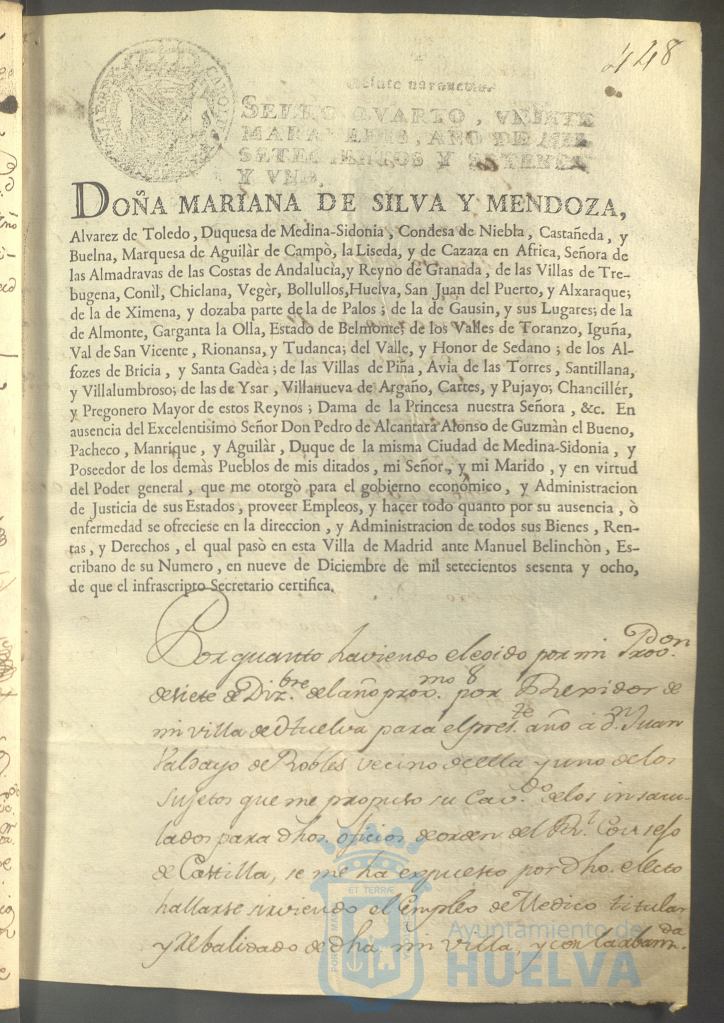 448
SELLO QVARTO, VEINTE
MARAVEDIS, AÑO DE MIL
SETECIENTOS Y SETENTA
Y VNO.
DOÑA MARIANA DE SILVA Y MENDOZA,
Alvarez de Toledo, Duquesa de Medina-Sidonia, Condesa de Niebla, Castañeda, y
Buelna, Marquesa de Aguilàr de Campò, la Liseda, y de Cazaza en Africa, Señora de
las Almadravas de las Costas de Andalucìa, y Reyno de Granada, de las Villas de Tre-
bugena, Conìl, Chiclana, Vegèr, Bollullos, Huelva, San Juan del Puerto, y Alxaraque;
de la de Ximena, y dozaba parte de la de Palos; de la de Gausin, y sus Lugares; de la
de Almonte, Garganta la Olla, Estado de Belmonte; de los Valles de Toranzo, Iguña,
Val de San Vicente, Rionansa, y Tudanca; del Valle, y Honor de Sedano; de los Al-
fozes de Bricia, y Santa Gadèa; de las Villas de Piña, Avia de las Torres, Santillana,
y Villalumbroso; de las de Ysar, Villanueva de Argaño, Cartes, y Pujayo; Chancillér,
y Pregonero Mayor de estos Reynos; Dama de la Princesa nuestra Señora, &c. En
ausencia del Excelentisimo Señor Don Pedro de Alcantara Alonso de Guzmàn el Bueno,
Pacheco, Manrique, y Aguilàr, Duque de la misma Ciudad de Medina-Sidonia, y
Poseedor de los demàs Pueblos de mis ditados, mi Señor, y mi Marido, y en virtud
del Poder general, que me otorgò para el gobierno económico, y Administracion
de Justicia de sus Estados, proveer Empleos, y hacer todo quanto por su ausencia, ò
enfermedad se ofreciese en la direccion, y Administracion de todos sus Bienes, Ren-
tas, y Derechos, el qual pasò en esta Villa de Madrid ante Manuel Belinchòn, Es-
cribano de su Numero, en nueve de Diciembre de mil setecientos sesenta y ocho,
de que el infrascripto Secretario certifica.
Por quanto haviendo elegido por mi Prov.on
de siete de Diz.bre del año prox.mo por Rexidor de
mi villa de Huelva para el pres.te año à d.n Juan
de Robles vecino de ella y uno de los
Sujetos que me propuso su Cav.do de los insacu-
lados para dhos. oficios de orden del R.l Consejo
de Castilla, se me ha expuesto por dho. electo
hallarse sirviendo el Empleo de Medico titular
y Rebalidado de dha. mi villa, y con la
ET TERRÆ
Ayuntamiento de
HUELVA